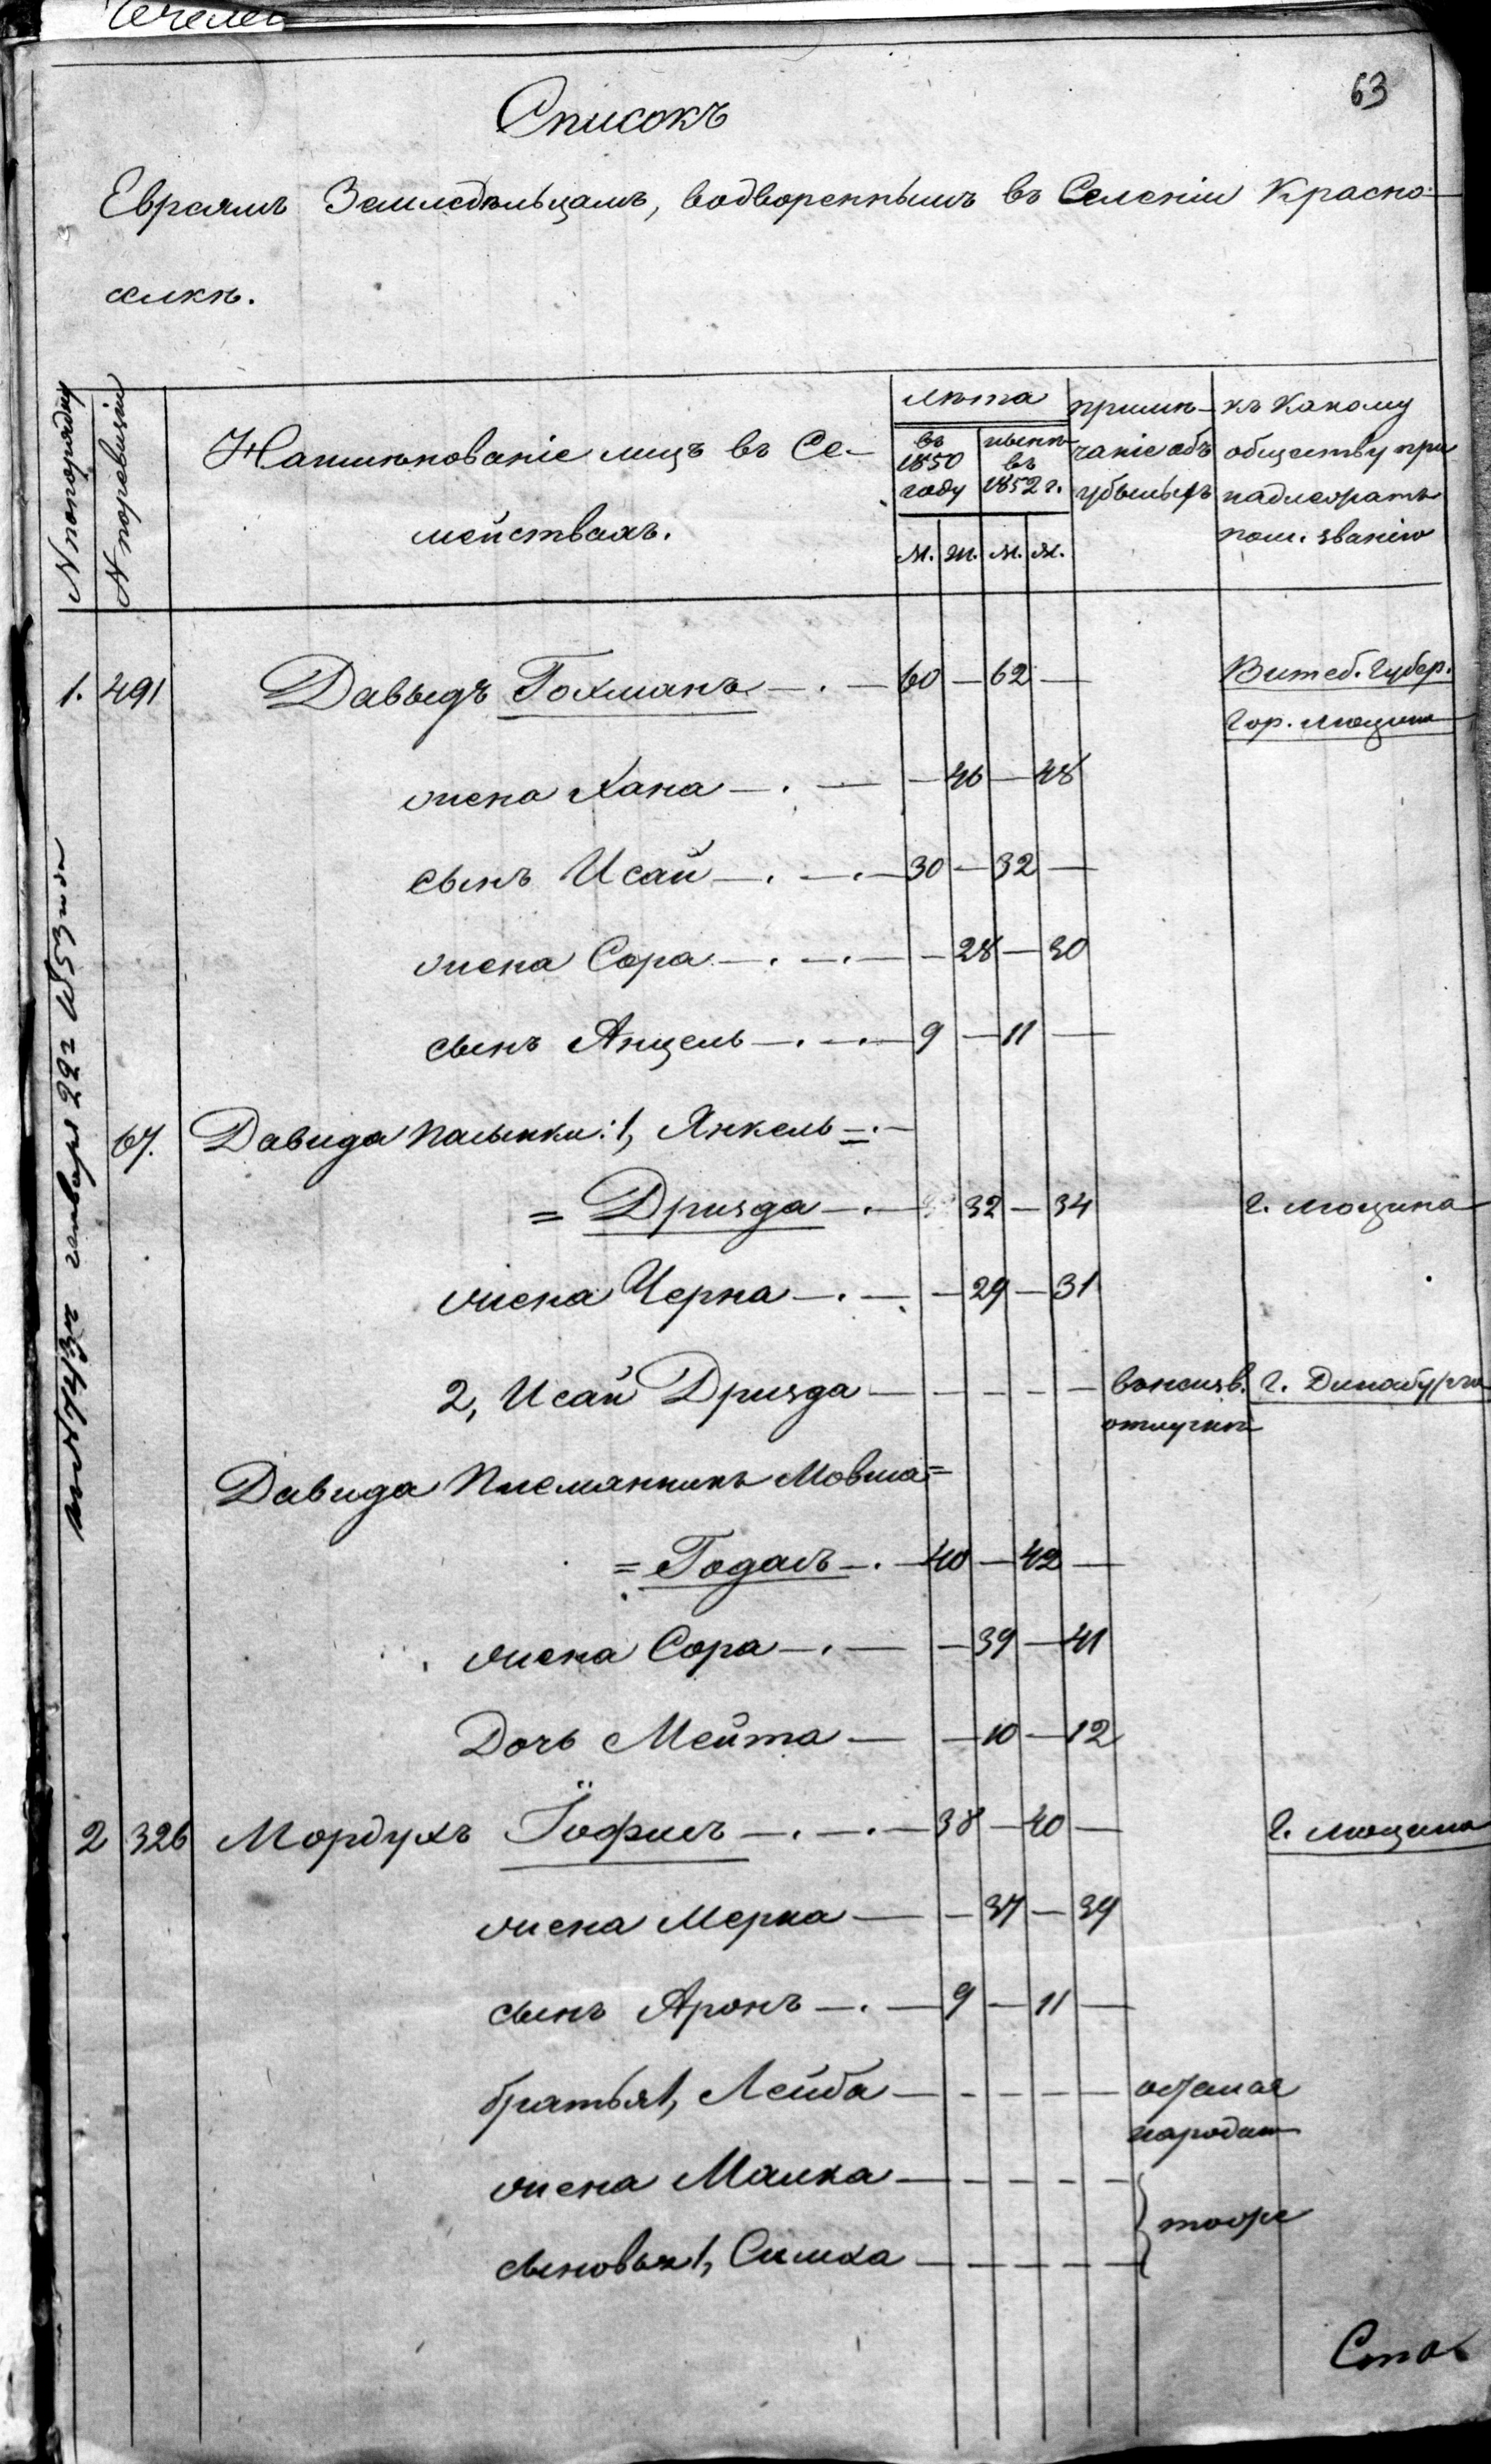 63
Списокъ
Евреямъ Земледѣльцамъ, водвореннымъ въ Селеніи Красно-
селкѣ.
N по порядку
N по ревизіи
Наимѣнованіе лицъ въ Се-
мействахъ.
лѣта
въ 1850 году
нынѣ въ 1852 г.
м. ж. м. ж.
примѣ-
чаніе объ
убылыхъ
къ какому
обществу при
надлежатъ
пом. званію
1. 491 Давыдъ Гохманъ 60 — 62 — Витеб. Губер.
Гор. Люцина
жена Хана — 46 — 48
сынъ Исай 30 — 32 —
жена Сора — 28 — 30
сынъ Анцель 9 — 11 —
67. Давида пасынки: 1, Янкель =
= Дризда 32 — 34 г. Люцина
жена Черна — 29 — 31
2, Исай Дризда — — — — в г. Динабурга
отлучки
Давида племянникъ Мовша =
= Годасъ 40 — 42 —
жена Сора — 39 — 41
Дочь Мейта — 10 — 12
2 326 Мордухъ Іофисъ 38 — 40 — г. Люцина
жена Мерка — 37 — 39
сынъ Аронъ 9 — 11 —
братья 1, Лейба — — — —
на родинѣ
жена Малка — — — —
тоже
сыновья 1, Симха — — — —